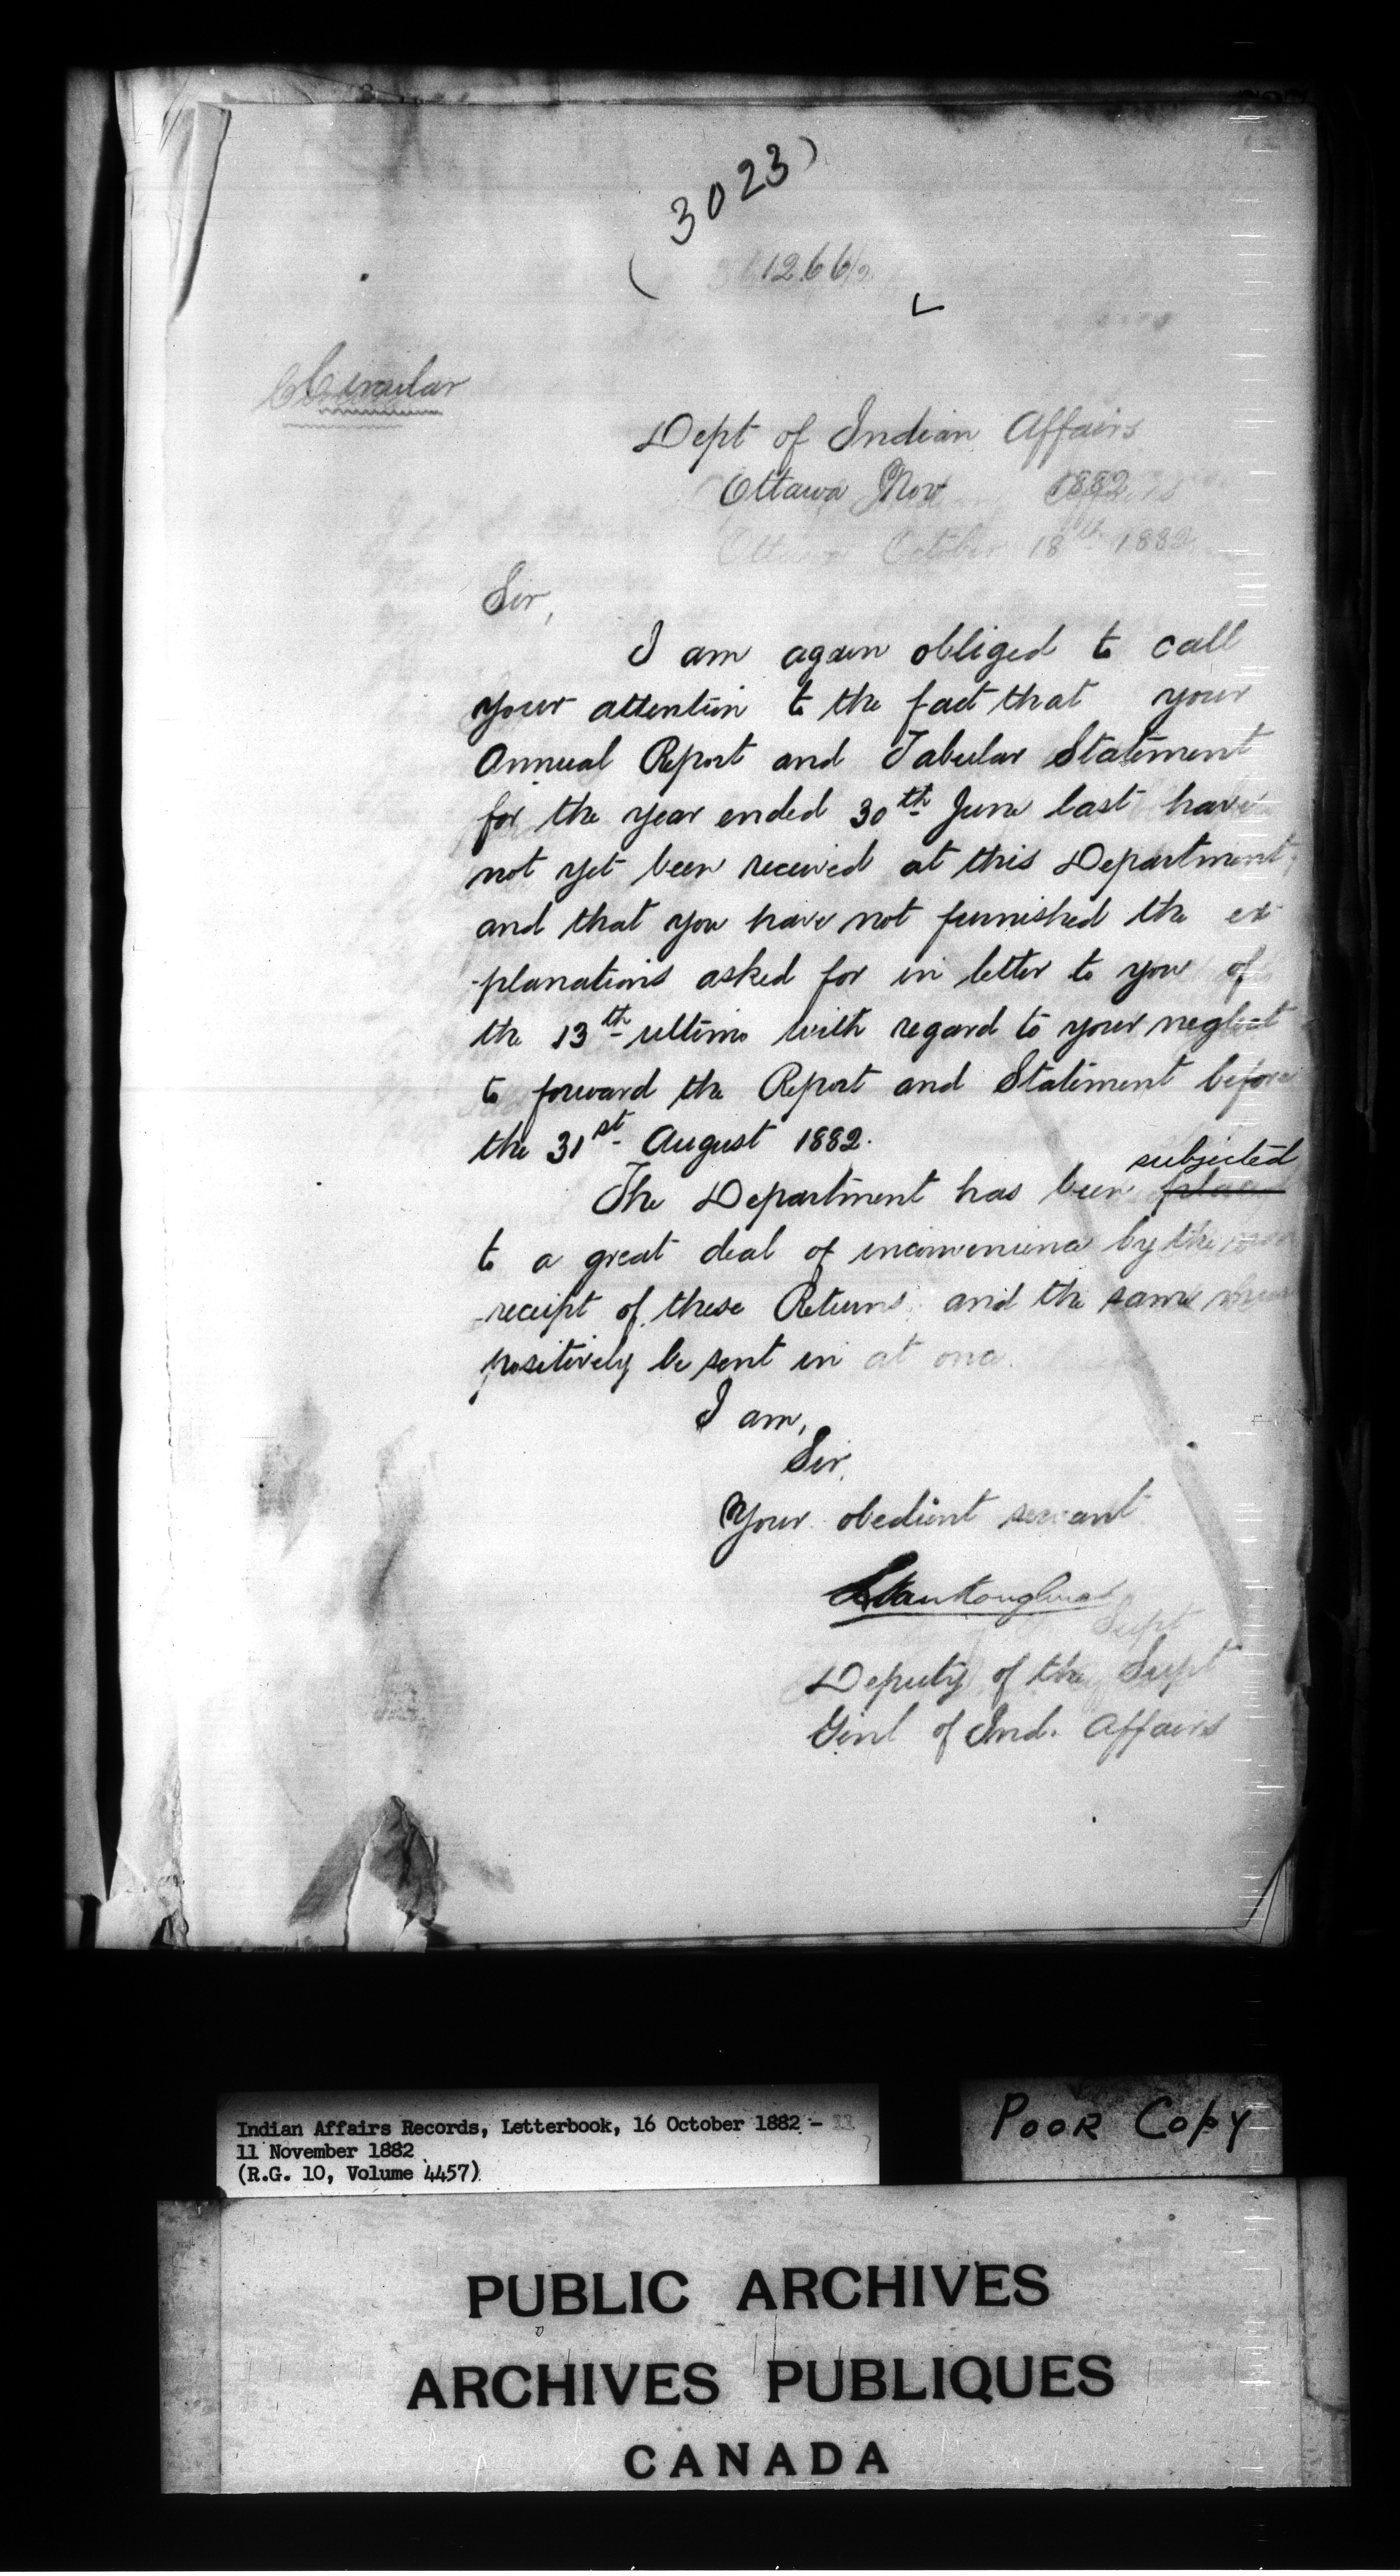 (3023)
1266½
Circular
Dept of Indian Affairs
Ottawa Nov 1882
Ottawa October 18th 1882
Sir,
I am again obliged to call
your attention to the fact that your
Annual Report and Tabular Statement
for the year ended 30th June last have
not yet been received at this Department,
and that you have not furnished the ex-
-planations asked for in letter to you of
the 13th ultimo with regard to your neglect
to forward the Report and Statement before
the 31st August 1882.
subjected
The Department has been placed
to a great deal of inconvenience by the non
-receipt of these Returns, and the same must
positively be sent in at once.
I am,
Sir,
Your obedient servant
L. Vankoughnet
Supt
Deputy of the Supt
Genl of Ind. Affairs
Indian Affairs Records, Letterbook, 16 October 1882 -
11 November 1882
(R.G. 10, Volume 4457)
POOR COPY
PUBLIC ARCHIVES
ARCHIVES PUBLIQUES
CANADA